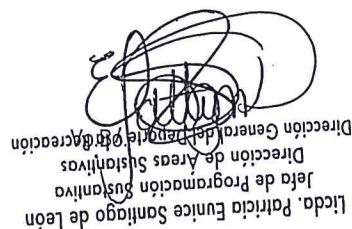 Licda. Patricia Eunice Santiago de León
Jefa de Programación Sustantiva
Dirección de Áreas Sustantivas
Dirección General del Deporte y la Recreación